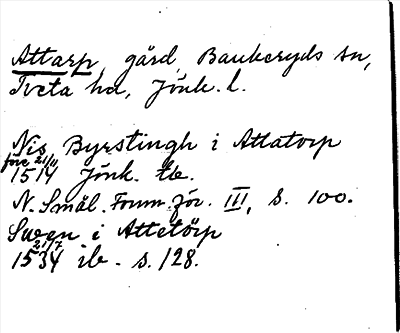 Attarp, gård, Bankeryds sn,
Tveta hd, Jönk. l.
Nis Byrstingh i Attatorp
före 21/11 1514 Jönk. tb.
N. Smål. Fornm.för. III, s. 100.
Swen i Attetörp
21/7 1534 ib. s. 128.